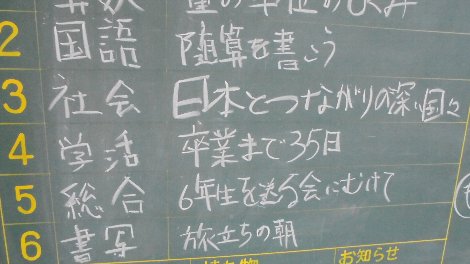 量の単位のしくみ
2 国語 随筆を書こう
3 社会 日本とつながりの深い国々
4 学活 卒業まで35日
5 総合 6年生を送る会にむけて
6 書写 旅立ちの朝
持ち物 お知らせ